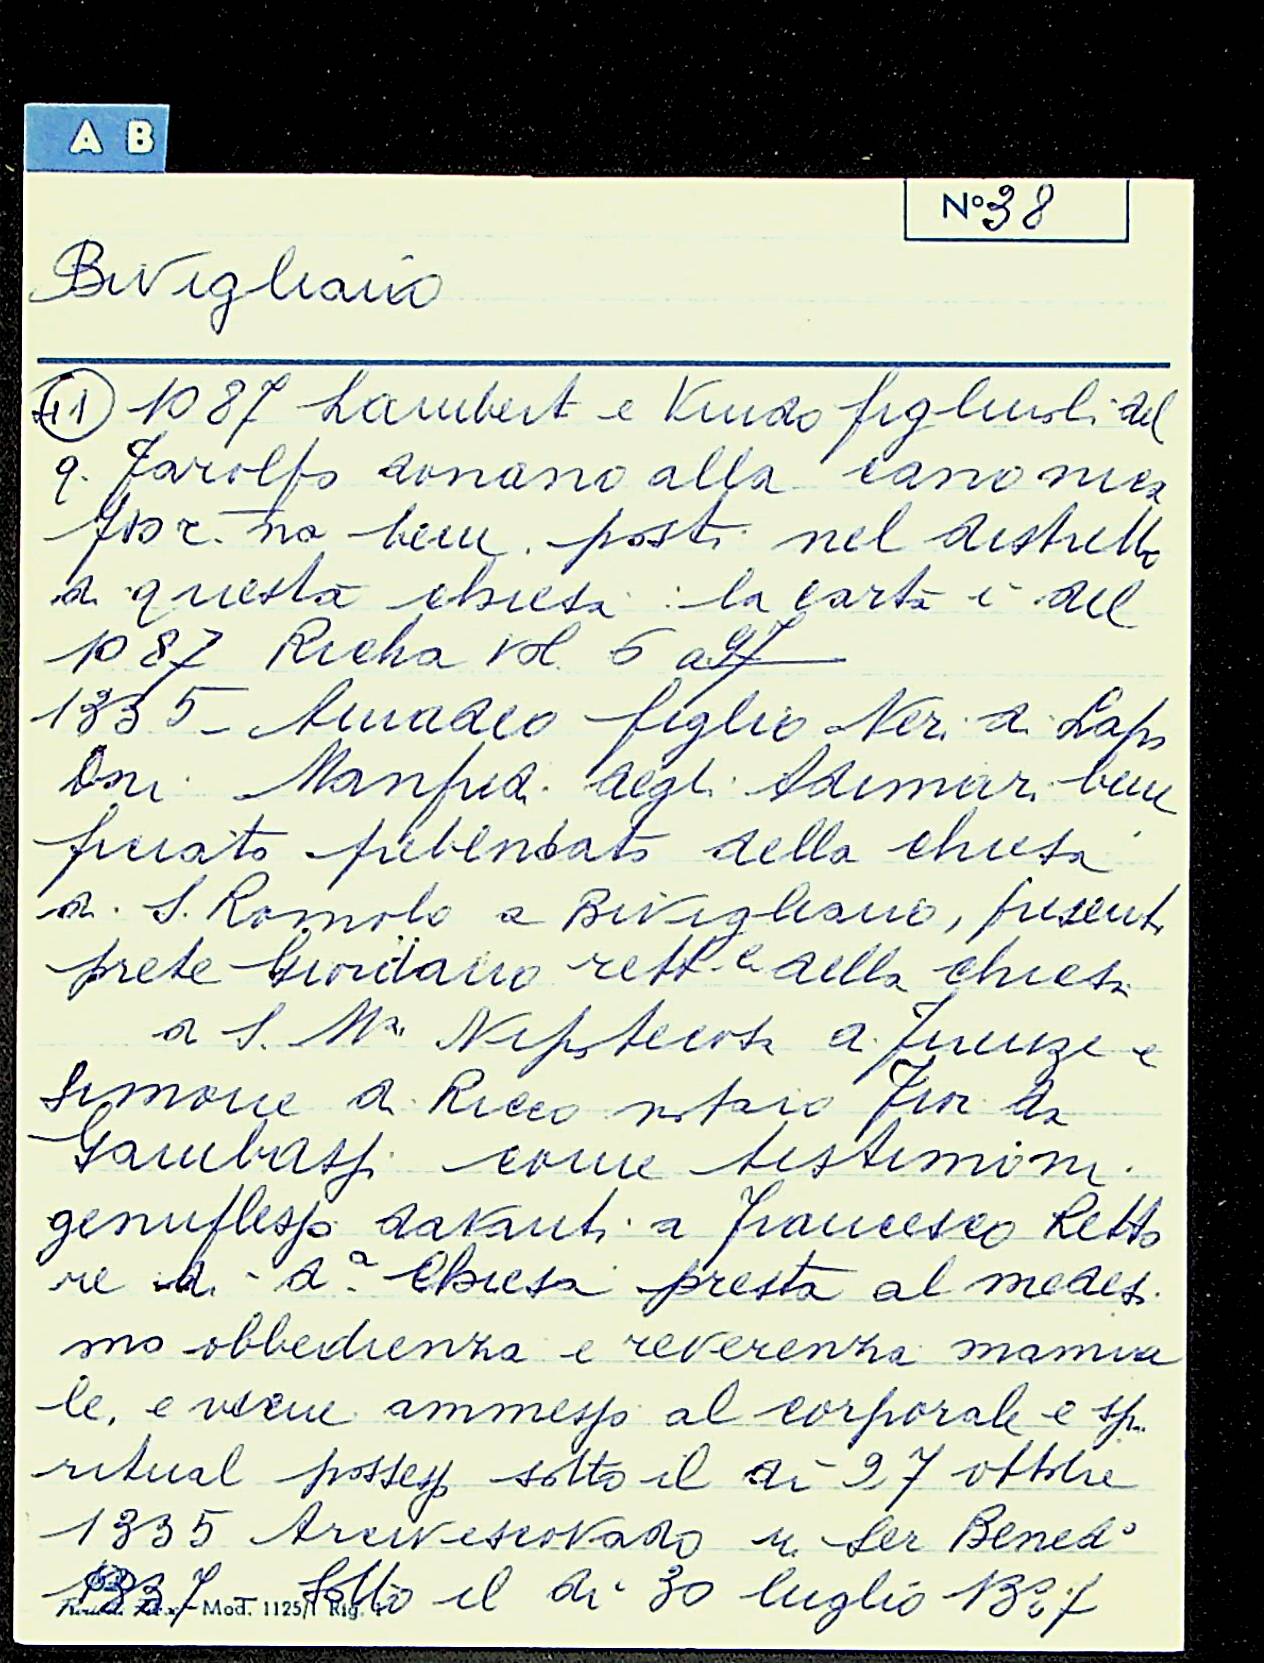 A B
Nº 38
Bivigliano
1087 Lambert e Kindo figliuoli del
q. Farolfo donano alla canonica
Fior.na beni posti nel distretto
di questa chiesa: la carta è del
1087 Richa vol. 6 a 97
1335 - Amadeo figlio Neri di Lapo
Dni. Manfredi degli Adimari bene
ficiato prebendato della chiesa
di S. Romolo a Bivigliano, presenti
prete Giordano rett.e della chiesa
di S. Mª Nipotecosa di Firenze e
Simone di Ricco notaio Fior. da
Gambassi come testimoni.
genuflesso davanti a Francesco Retto
re di dª Chiesa presta al medesi
mo obbedienza e reverenza manua
le, e viene ammesso al corporale e spi
ritual possesso sotto il dì 27 ottobre
1335 Arcivescovado n. Ser Bened°
1337 - Sotto il dì 30 luglio 1337
Mod. 1125/1 Rig.